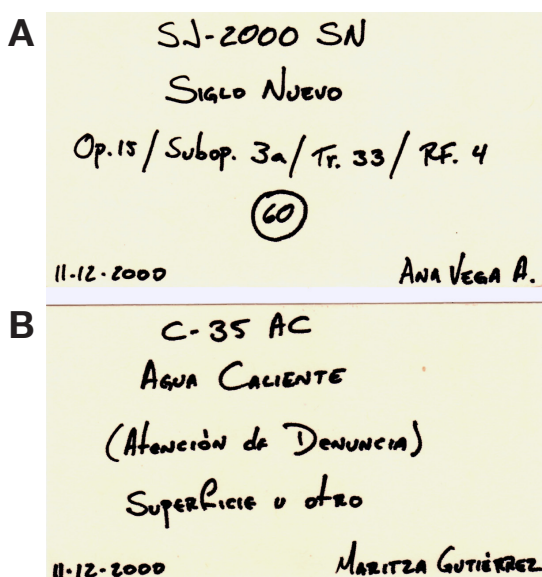 A
SJ-2000 SN
SIGLO NUEVO
Op.15/Subop. 3a/Tr. 33/RF. 4
60
11-12-2000 ANA VEGA A.
B
C-35 AC
AGUA CALIENTE
(Atención de Denuncia)
Superficie u otro
11-12-2000 MARITZA GUTIÉRREZ